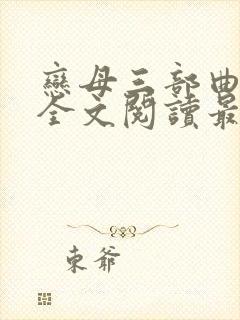 戀母三部曲
全文閱讀最
東爺